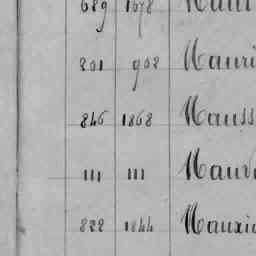 689 1678 Mau
801 968 Mauri
846 1868 Mauss
111 111 Mauv
822 1844 Mauxi